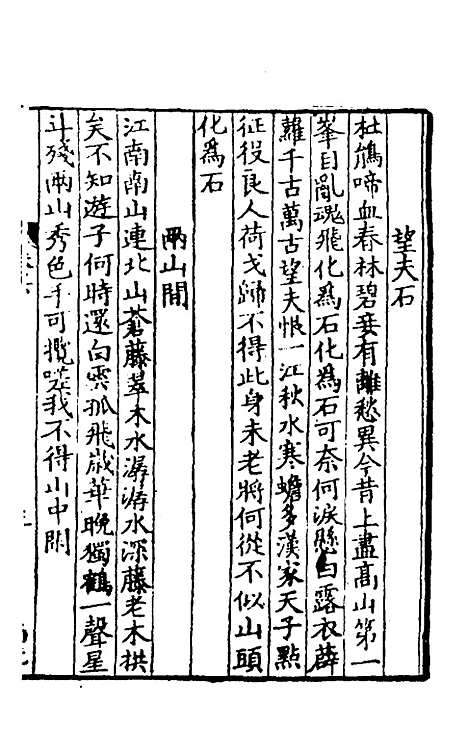 望夫石
杜鵑啼血春林碧妾有離愁異今昔上盡髙山第一
峯目亂魂飛化為石化為石可奈何淚懸白露衣薜
蘿千古萬古望夫恨一江秋水寒蟾多漢家天子點
征役良人荷戈歸不得此身未老將何從不似山頭
化為石
兩山間
江南兩山連北山蒼藤翠木水潺潺水深藤老木拱
矣不知遊子何時還白雲孤飛歲華晚獨鶴一聲星
斗殘兩山秀色手可攬嗟我不得山中閒